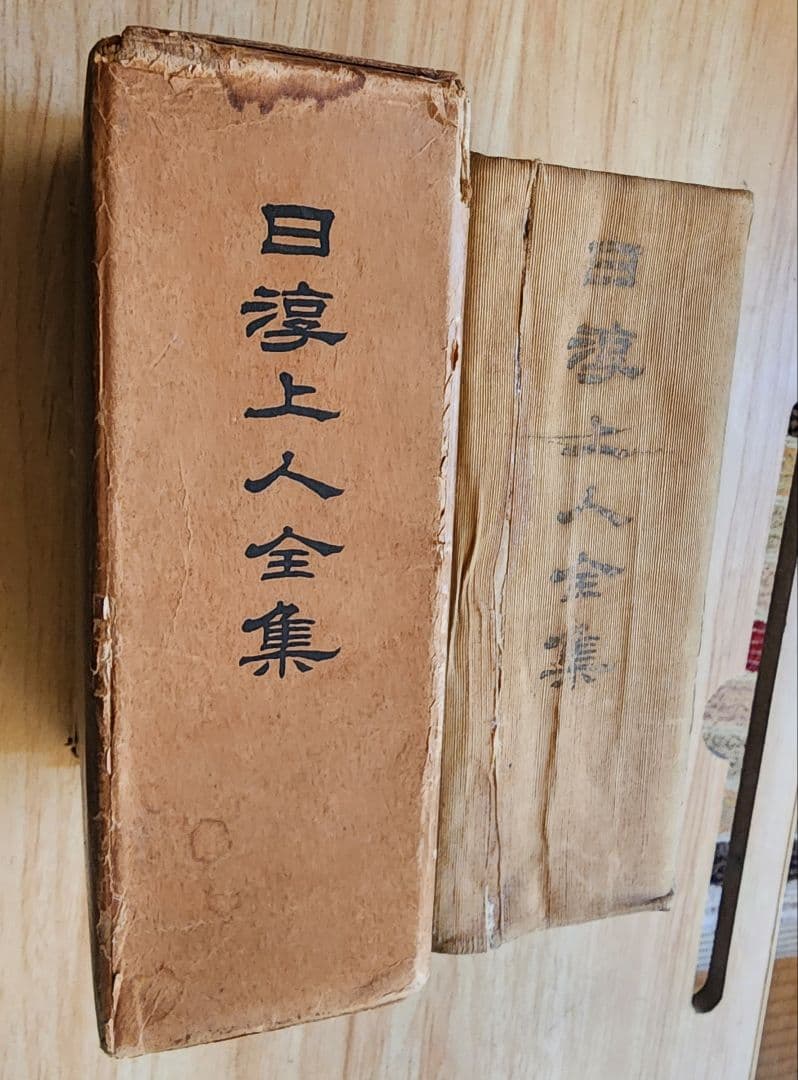 日淳上人全集
日淳上人全集